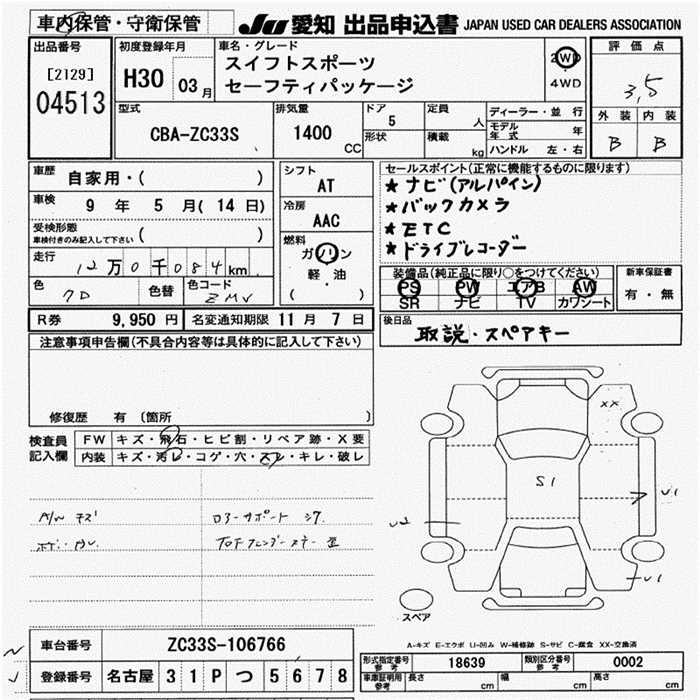 車内保管・守衛保管
JU 愛知 出品申込書 JAPAN USED CAR DEALERS ASSOCIATION
出品番号 初度登録年月 車名・グレード 評価点
[2129] H30 03月 スイフトスポーツ 2WD 3.5
04513 セーフティパッケージ 4WD
外装 内装
B B
型式 排気量 ドア 定員 ディーラー・並行
CBA-ZC33S 1400 CC 5 人 モデル年式 年
形状 積載 kg ハンドル 左・右
車歴 自家用・( ) シフト AT
車検 9 年 5 月( 14 日) 冷房 AAC
受検形態 車検付きのみ記入して下さい ( )
燃料 ガソリン 軽・油 ( )
走行 12万0千084km
色 色替 色コード ZMV
R券 9,950 円 名変通知期限 11 月 7 日
セールスポイント(正常に機能するものに限ります)
★ナビ(アルパイン)
★バックカメラ
★ETC
★ドライブレコーダー
装備品(純正品に限り○をつけてください) 新車保証書
PS PW エアB AW 有・無
SR ナビ TV カワシート
後日品 取説・スペアキー
注意事項申告欄(不具合内容等は具体的に記入して下さい)
修復歴 有 〔箇所 〕
検査員記入欄 FW キズ・飛石・ヒビ割・リペア跡・X要
内装 キズ・汚レ・コゲ・穴・スレ・キレ・破レ
A/W キズ
ロアーサポート
XX
S1
U1
U2
U1
スペア
A-キズ E-エクボ U-凹み W-補修跡 S-サビ C-腐食 XX-交換済
車台番号 ZC33S-106766
登録番号 名古屋 3 1 P つ 5 6 7 8
形式指定番号 参考 18639 類別区分番号 参考 0002
車庫証明用 参考 長さ cm 幅 cm 高さ cm